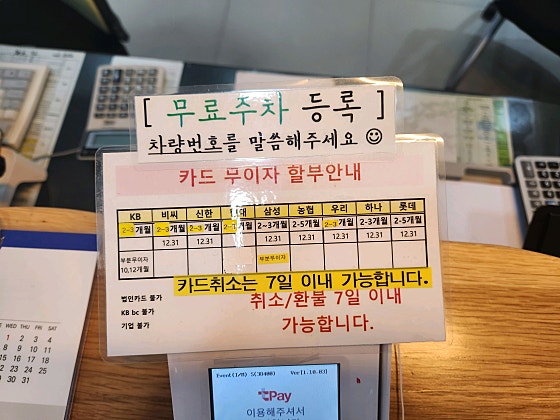 [ 무료주차 등록 ]
차량번호를 말씀해주세요 ☺
카드 무이자 할부안내
KB 비씨 신한 현대 삼성 농협 우리 하나 롯데
2~3개월 2~3개월 2~3개월 개월 2~3개월 2~5개월 2~3개월 2-3개월 2-5개월
12.31 12.31 12.31 12.31 12.31 12.31 12.31
부분무이자 부분무이자
10,12개월
카드취소는 7일 이내 가능합니다.
법인카드 불가
KB bc 불가
기업 불가
취소/환불 7일 이내
가능합니다.
Event(I/B) S(3D400) Ver[1.10.03]
tPay
이용해주셔서
WED THU FRI SAT